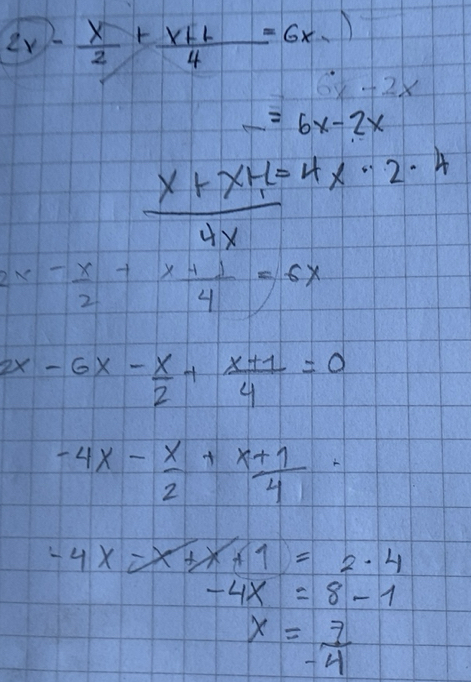 2x - x/2 + x+1/4 = 6x
6x - 2x
= 6x-2x
x + x+1 = 4x · 2 · 4
4x
2x - x/2 + x+1/4 = 6x
2x - 6x - x/2 + x+1/4 = 0
-4x - x/2 + x+1/4
-4x - x + x + 1 = 2·4
-4x = 8 - 1
x = 7/-4